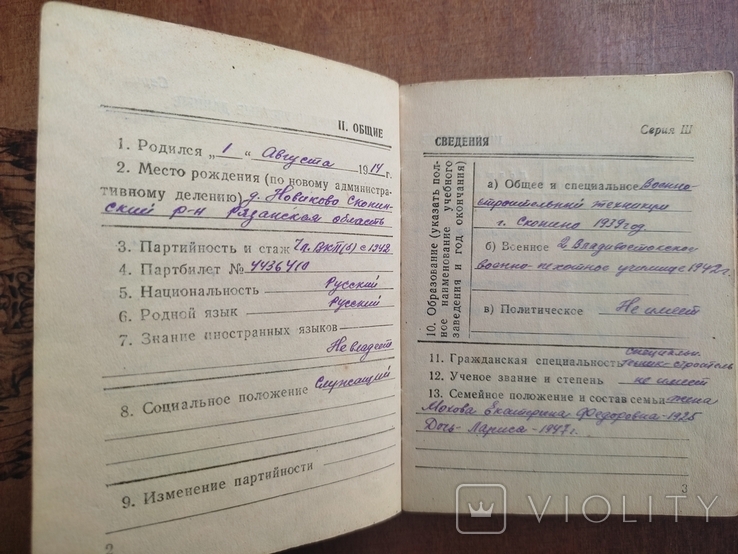 II. ОБЩИЕ
1. Родился „1“ Августа 1914 г.
2. Место рождения (по новому административному делению) д. Новиково Скопинский р-н Рязанская область
3. Партийность и стаж Чл. ВКП(б) с 1942
4. Партбилет № 4436410
5. Национальность Русский
6. Родной язык Русский
7. Знание иностранных языков
Не владеет
8. Социальное положение Служащий
9. Изменение партийности
2
Серия III
СВЕДЕНИЯ
10. Образование (указать полное наименование учебного заведения и год окончания)
а) Общее и специальное Военно-
строительный техникум
г. Скопино 1939 год
б) Военное 2 Владивостокское
военно-пехотное училище с 1942 г.
в) Политическое Не имеет
11. Гражданская специальность
техник-строитель
12. Ученое звание и степень не имеет
13. Семейное положение и состав семьи жена
Мохова Екатерина Федоровна-1925
Дочь-Лариса-1947 г.
3
VIOLITY